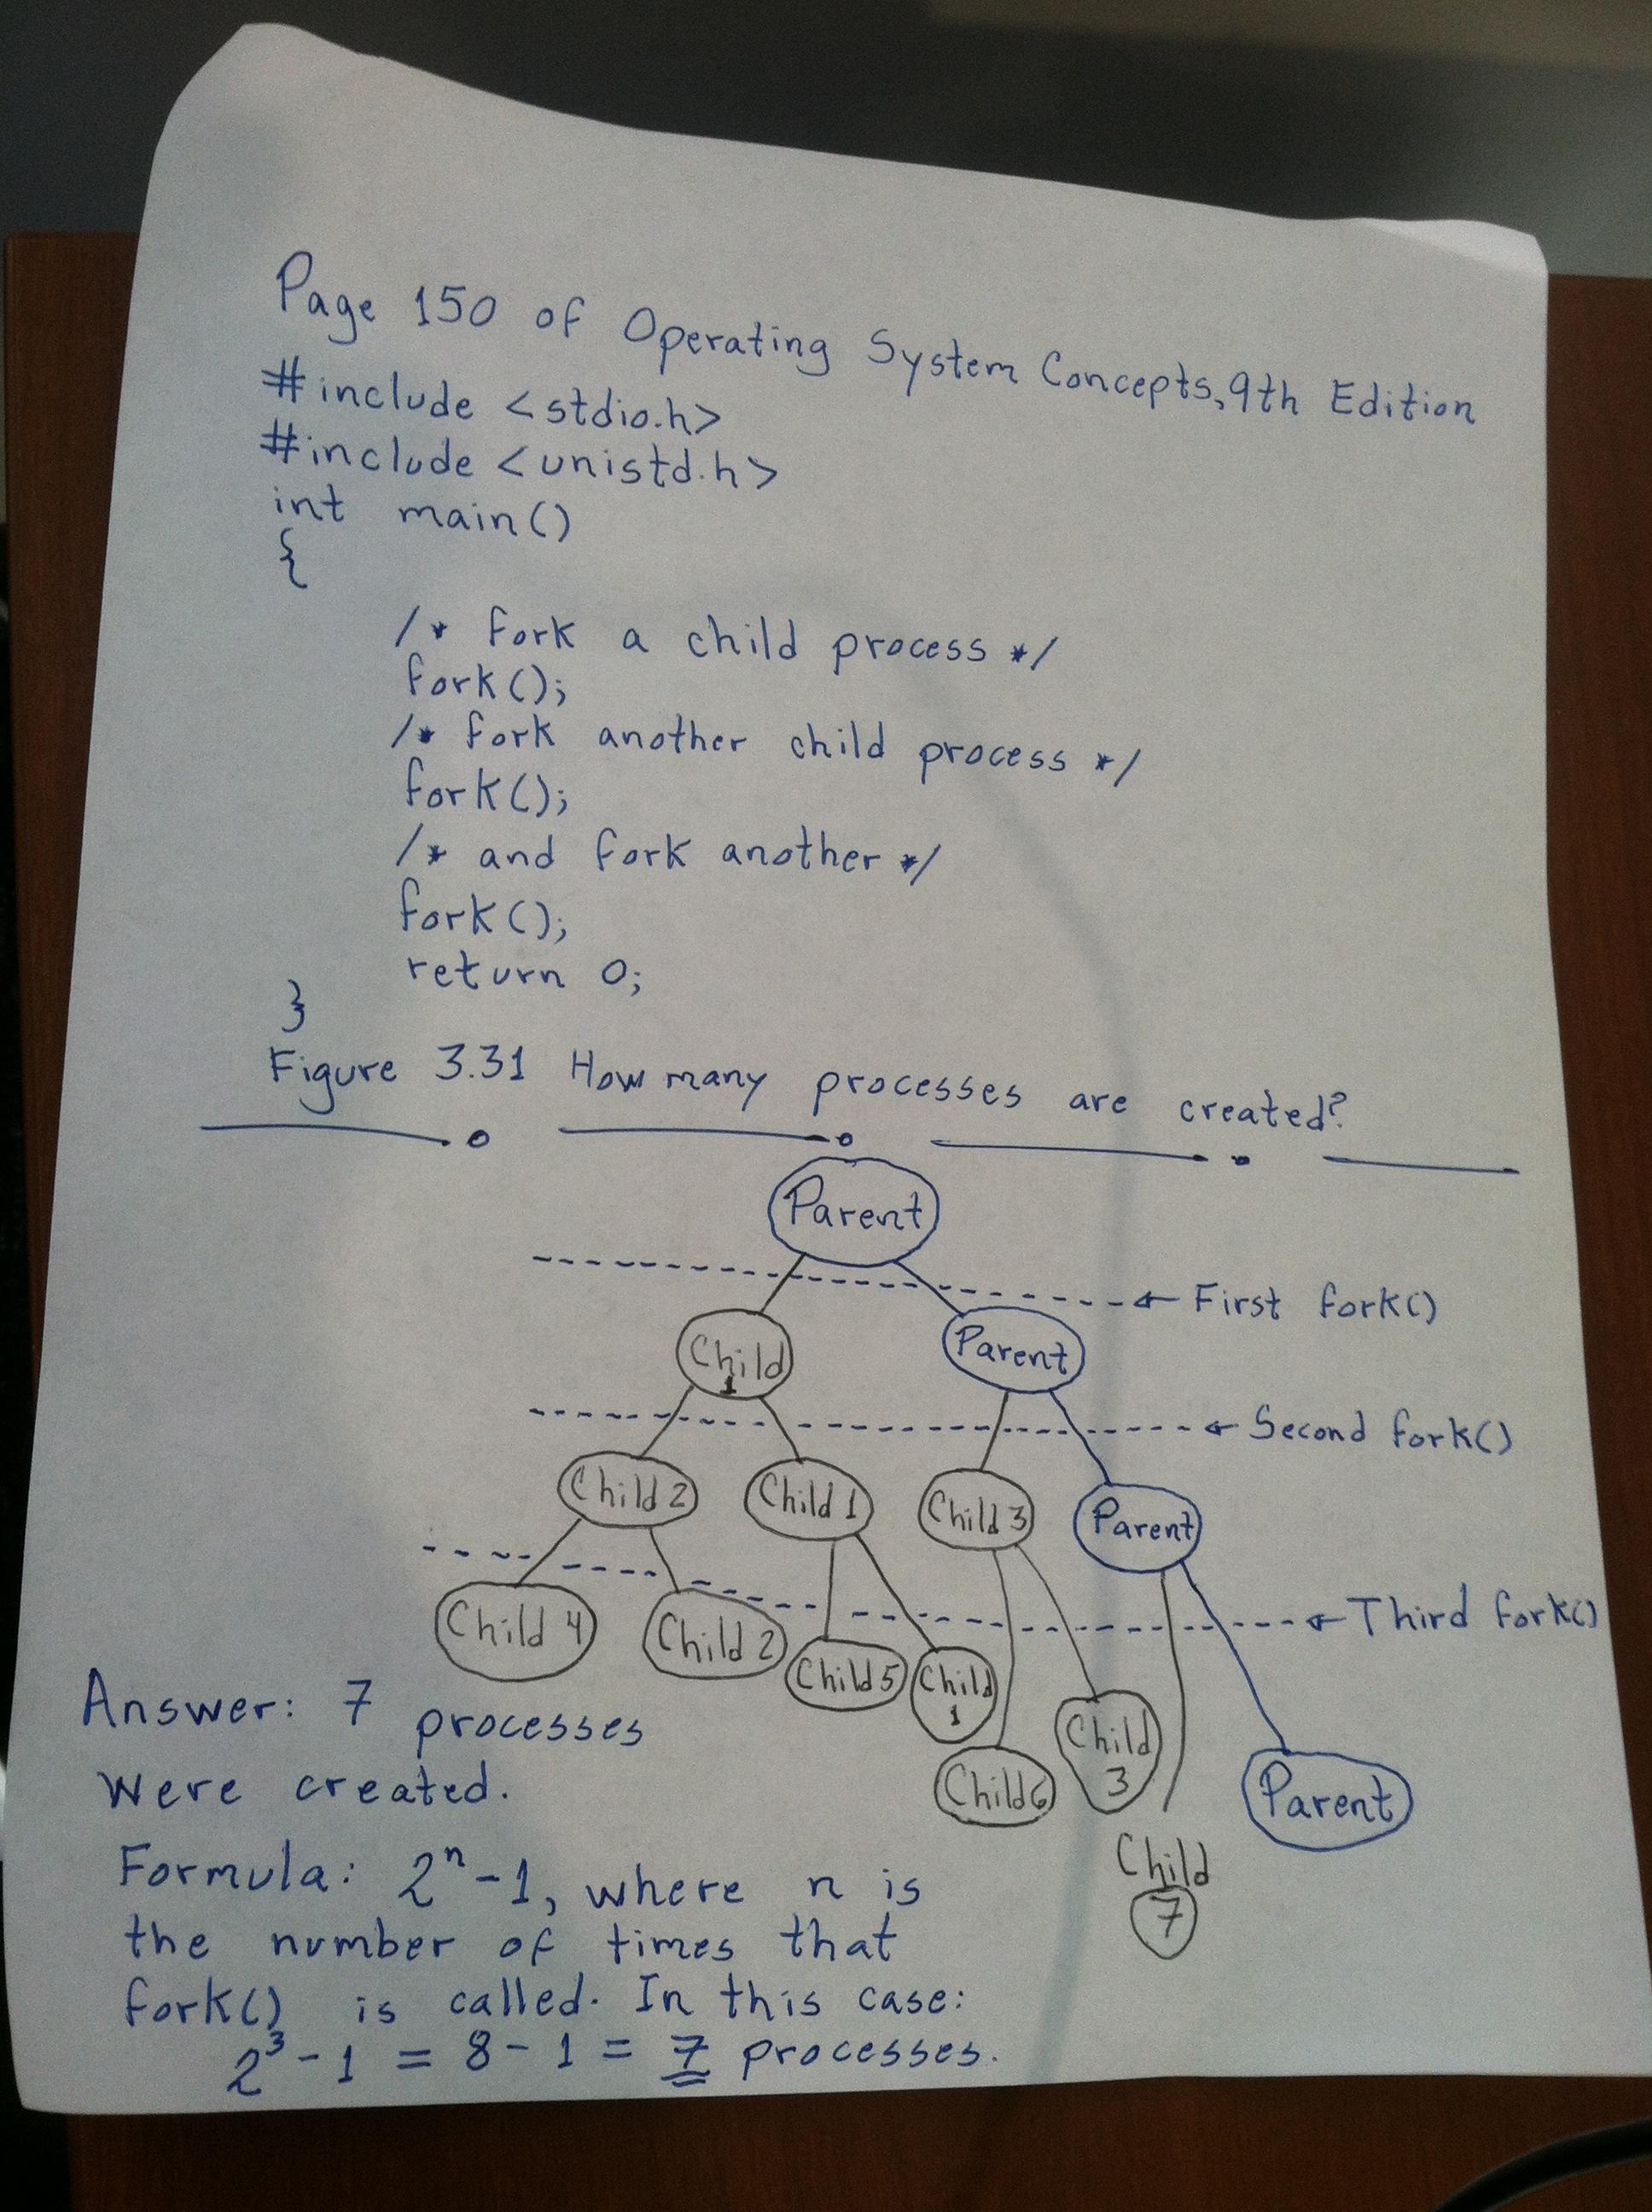 Page 150 of Operating System Concepts, 9th Edition
#include <stdio.h>
#include <unistd.h>
int main()
{
/* fork a child process */
fork();
/* fork another child process */
fork();
/* and fork another */
fork();
return 0;
}
Figure 3.31 How many processes are created?
Parent
First fork()
Child 1 Parent
Second fork()
Child 2 Child 1 Child 3 Parent
Third fork()
Child 4 Child 2 Child 5 Child 1 Child 6 Child 3 Child 7 Parent
Answer: 7 processes
were created.
Formula: 2ⁿ-1, where n is
the number of times that
fork() is called. In this case:
2³-1 = 8-1 = 7 processes.